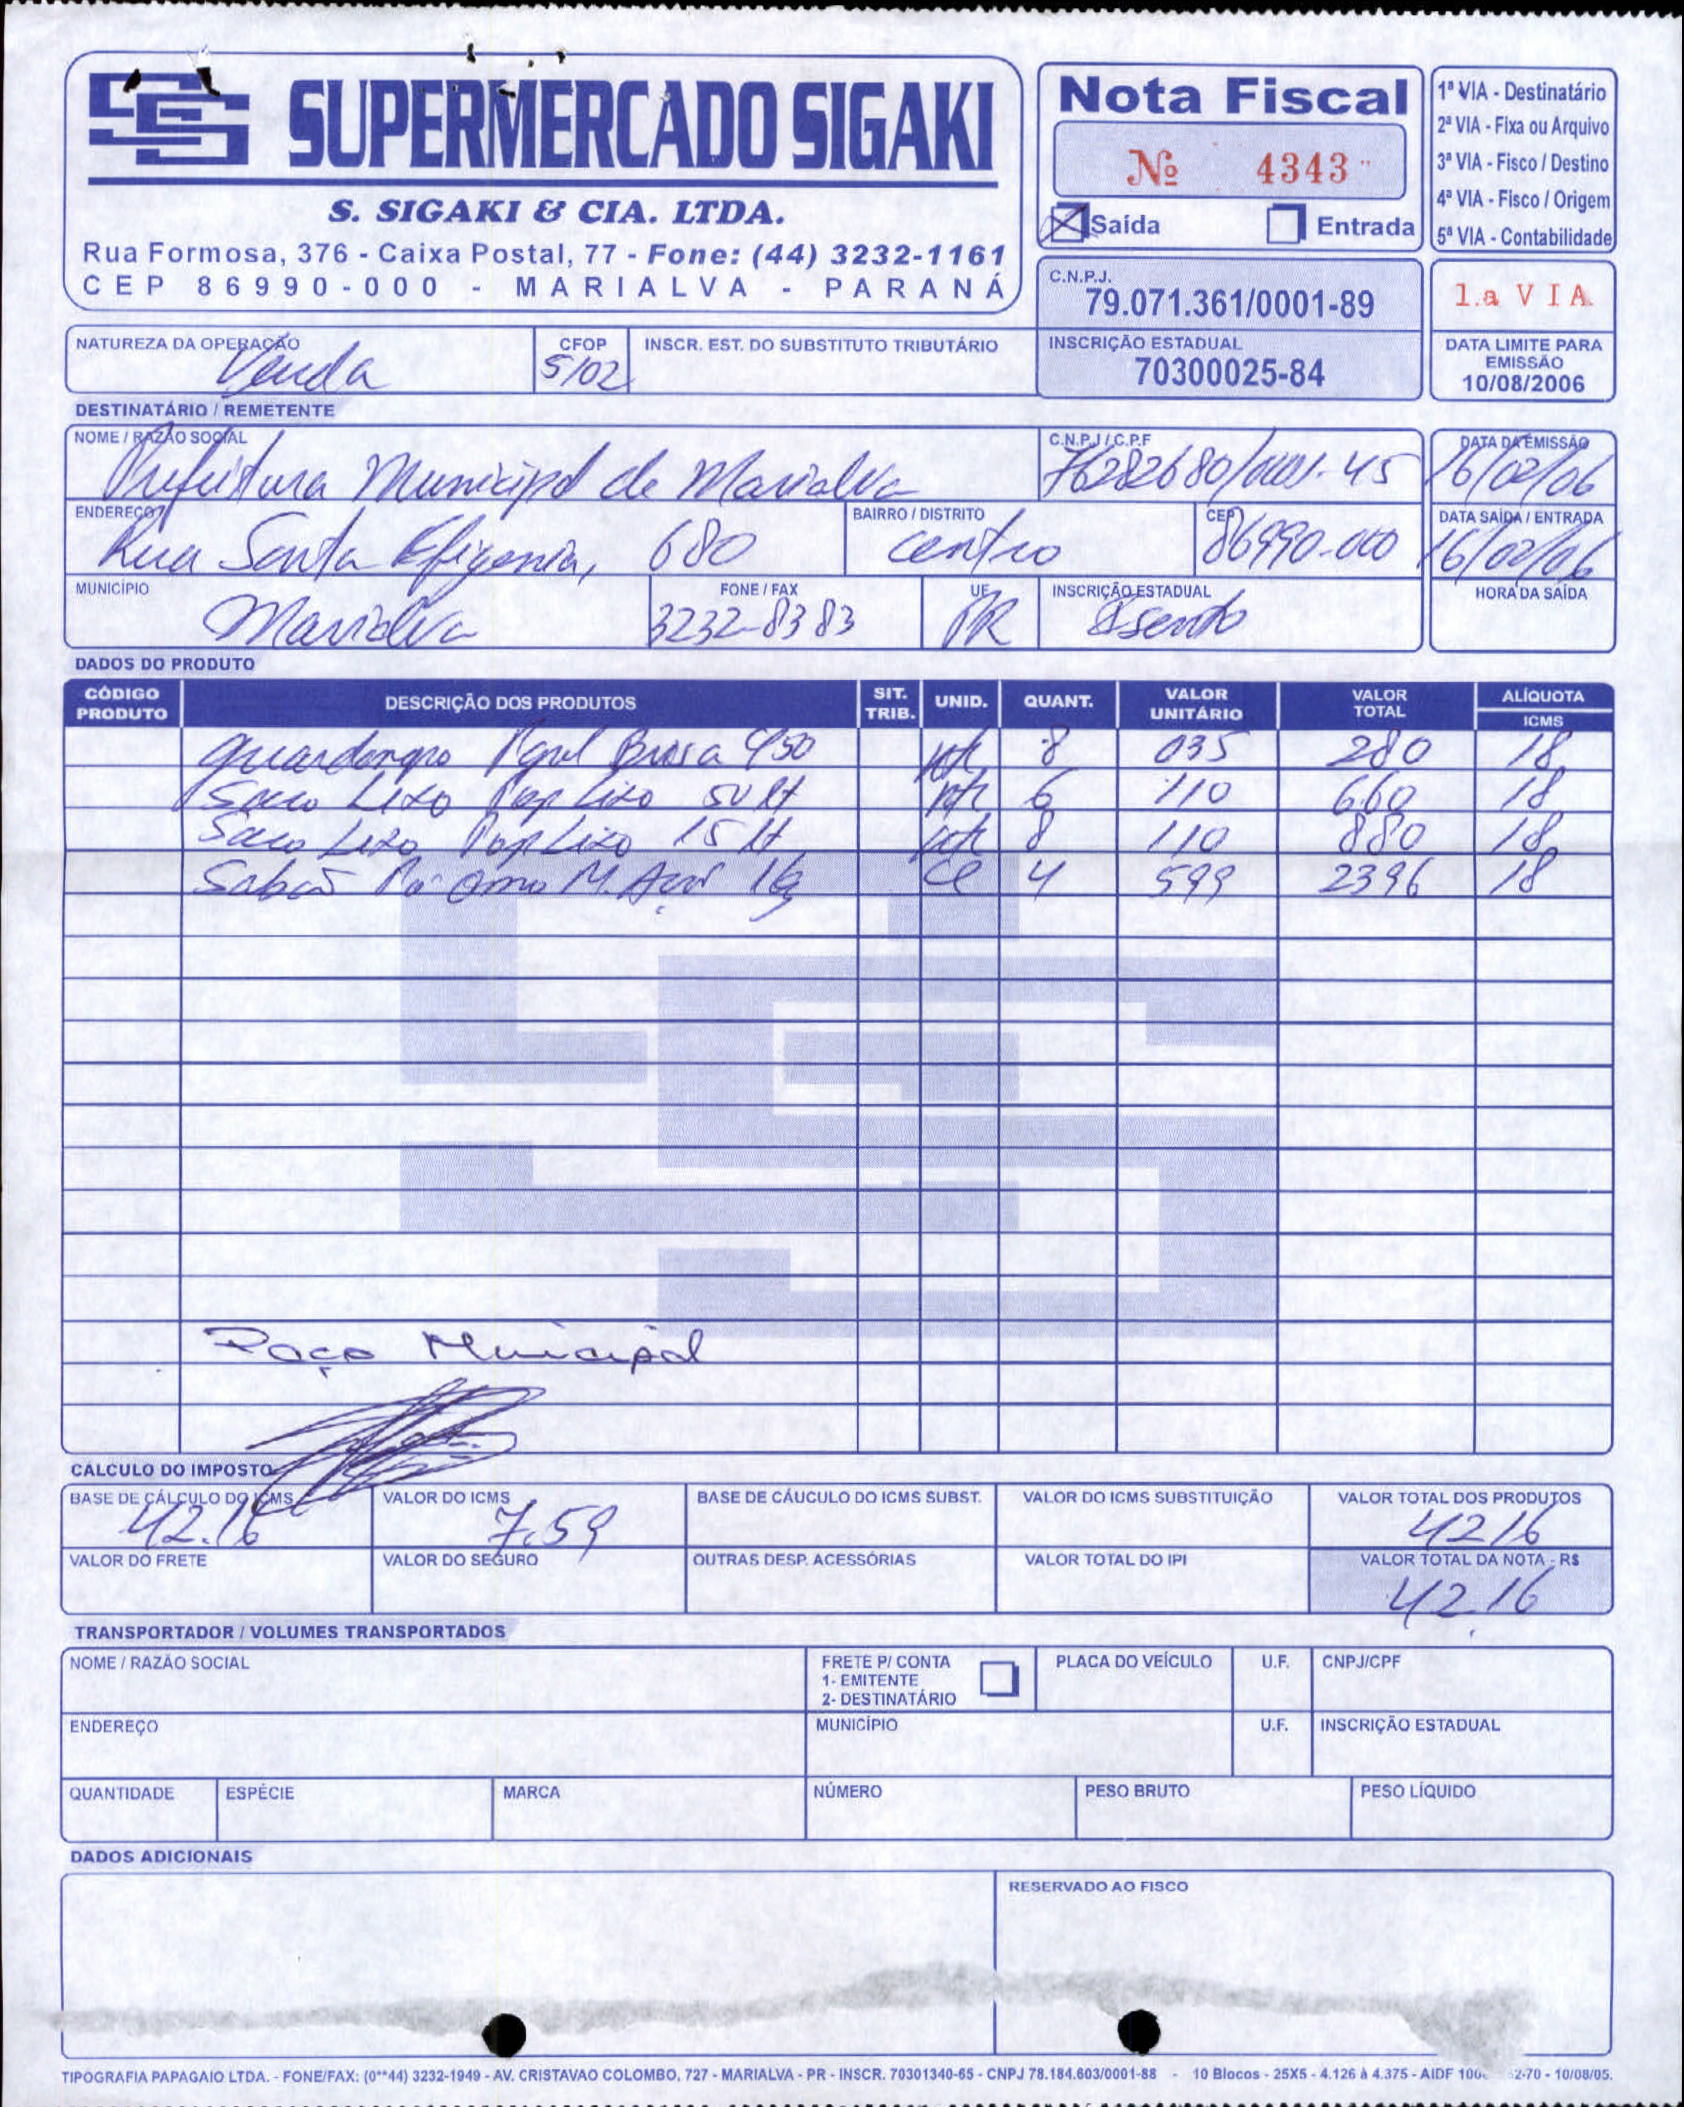 SUPERMERCADO SIGAKI
S. SIGAKI & CIA. LTDA.
Rua Formosa, 376 - Caixa Postal, 77 - Fone: (44) 3232-1161
CEP 86990-000 - MARIALVA - PARANÁ
Nota Fiscal
Nº 4343
Saída Entrada
1ª VIA - Destinatário
2ª VIA - Fixa ou Arquivo
3ª VIA - Fisco / Destino
4ª VIA - Fisco / Origem
5ª VIA - Contabilidade
C.N.P.J.
79.071.361/0001-89
1.a VIA
NATUREZA DA OPERAÇÃO
Venda
CFOP
5102
INSCR. EST. DO SUBSTITUTO TRIBUTÁRIO
INSCRIÇÃO ESTADUAL
70300025-84
DATA LIMITE PARA
EMISSÃO
10/08/2006
DESTINATÁRIO / REMETENTE
NOME / RAZÃO SOCIAL
Prefeitura Municipal de Marialva
C.N.P.J / C.P.F
76282680/0001-45
DATA DA EMISSÃO
16/02/06
ENDEREÇO
Rua Santa Efigenia, 680
BAIRRO / DISTRITO
centro
CEP
86990-000
DATA SAÍDA / ENTRADA
16/02/06
MUNICÍPIO
Marialva
FONE / FAX
3232-8383
UF
PR
INSCRIÇÃO ESTADUAL
Isento
HORA DA SAÍDA
DADOS DO PRODUTO
CÓDIGO PRODUTO DESCRIÇÃO DOS PRODUTOS SIT. TRIB. UNID. QUANT. VALOR UNITÁRIO VALOR TOTAL ALÍQUOTA ICMS
8 035 280 18
Saco Lixo Pop Lixo 50 lt 6 110 660 18
Saco Lixo Pop Lixo 15 lt 8 110 880 18
Sabão Pó Omo M. Açao 1kg cx 4 599 2396 18
Paço Municipal
CÁLCULO DO IMPOSTO
BASE DE CÁLCULO DO ICMS
42.16
VALOR DO ICMS
7.59
BASE DE CÁUCULO DO ICMS SUBST.
VALOR DO ICMS SUBSTITUIÇÃO
VALOR TOTAL DOS PRODUTOS
4216
VALOR DO FRETE
VALOR DO SEGURO
OUTRAS DESP. ACESSÓRIAS
VALOR TOTAL DO IPI
VALOR TOTAL DA NOTA - R$
42.16
TRANSPORTADOR / VOLUMES TRANSPORTADOS
NOME / RAZÃO SOCIAL
FRETE P/ CONTA
1- EMITENTE
2- DESTINATÁRIO
PLACA DO VEÍCULO
U.F.
CNPJ/CPF
ENDEREÇO
MUNICÍPIO
U.F.
INSCRIÇÃO ESTADUAL
QUANTIDADE
ESPÉCIE
MARCA
NÚMERO
PESO BRUTO
PESO LÍQUIDO
DADOS ADICIONAIS
RESERVADO AO FISCO
TIPOGRAFIA PAPAGAIO LTDA. - FONE/FAX: (0**44) 3232-1949 - AV. CRISTAVAO COLOMBO, 727 - MARIALVA - PR - INSCR. 70301340-65 - CNPJ 78.184.603/0001-88 - 10 Blocos - 25X5 - 4.126 à 4.375 - AIDF 2-70 - 10/08/05.